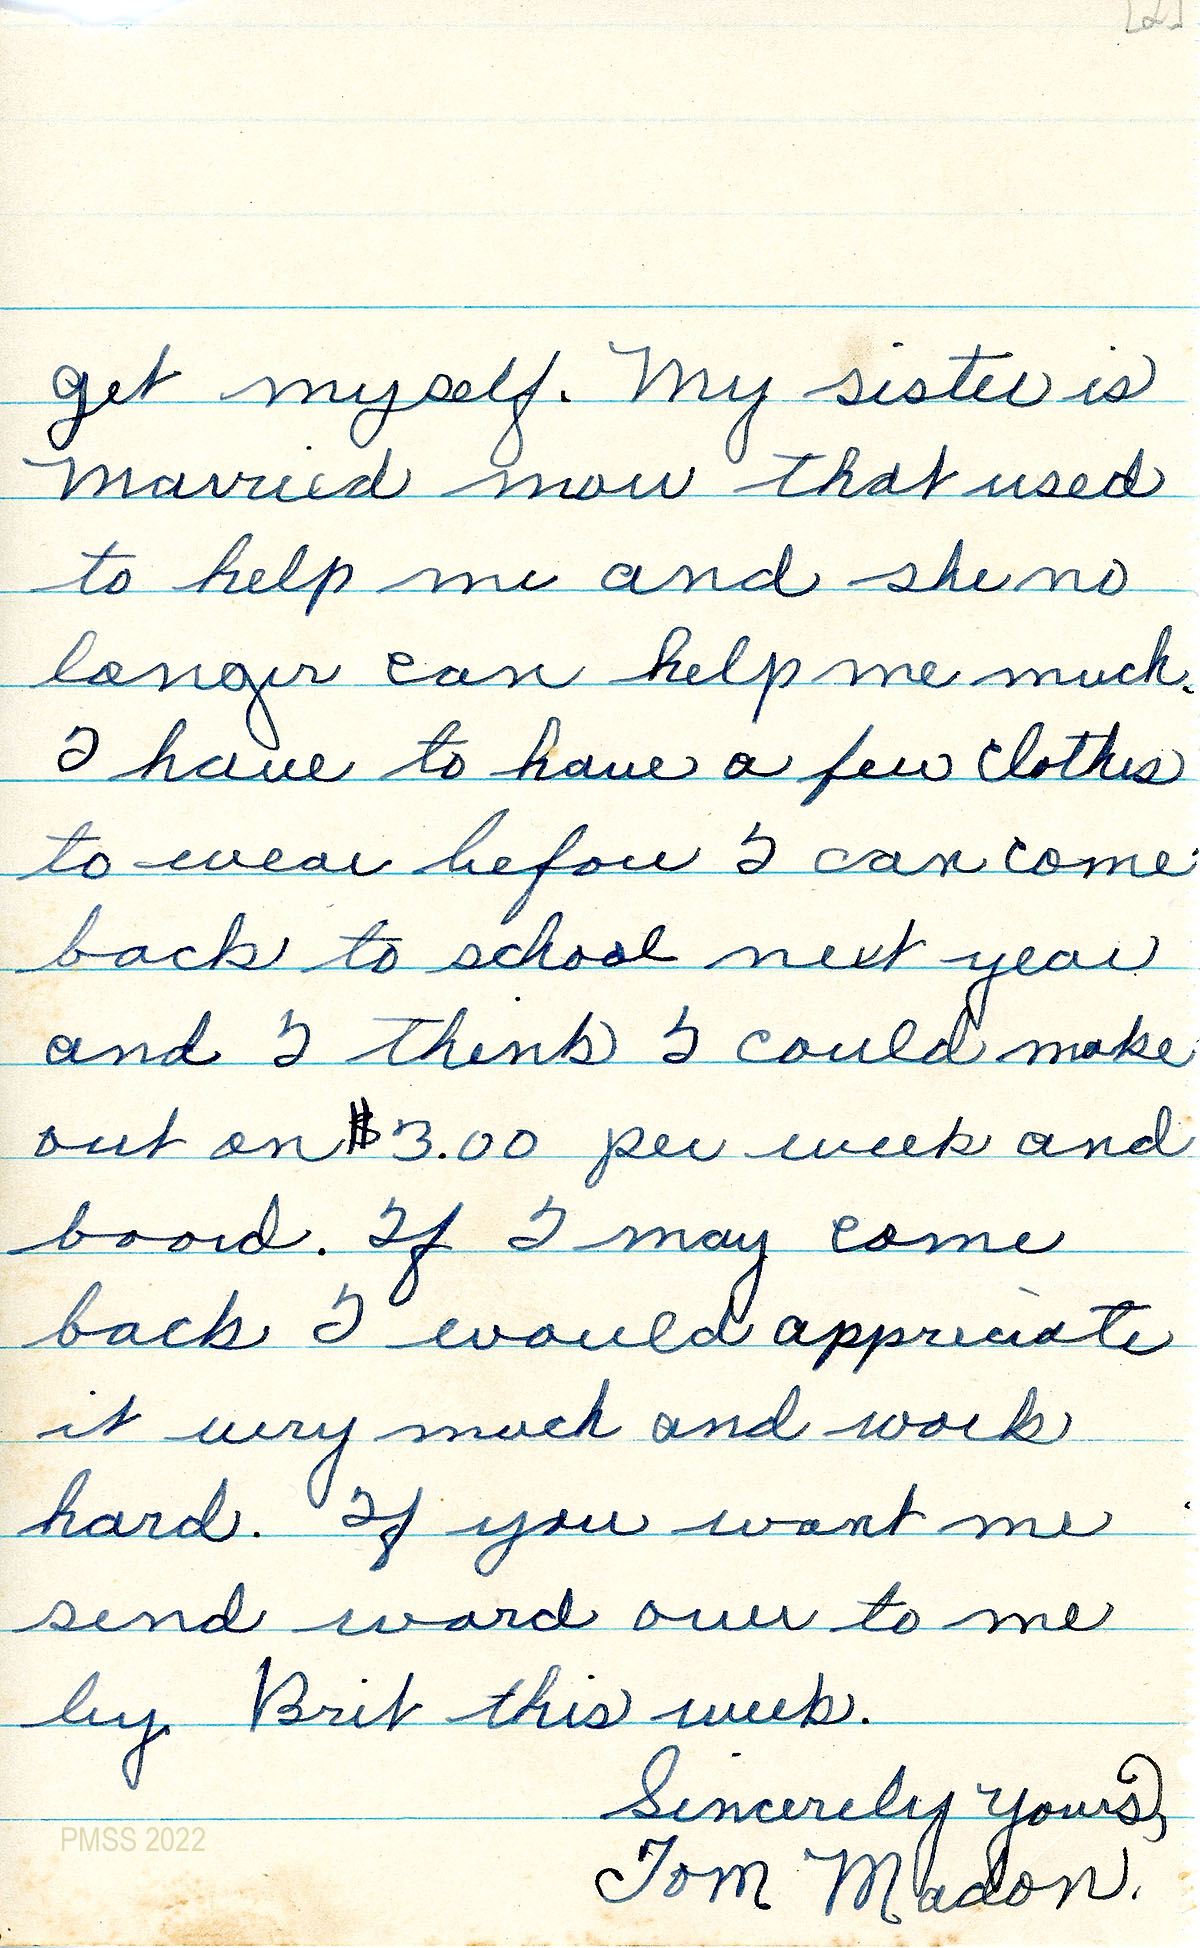 [2]
get myself. My sister is
married now that used
to help me and she no
longer can help me much.
I have to have a few clothes
to wear before I can come
back to school next year
and I think I could make
out on $3.00 per week and
board. If I may come
back I would appreciate
it very much and work
hard. If you want me
send word over to me
by Brit this week.
Sincerely yours,
Tom Madon.
PMSS 2022